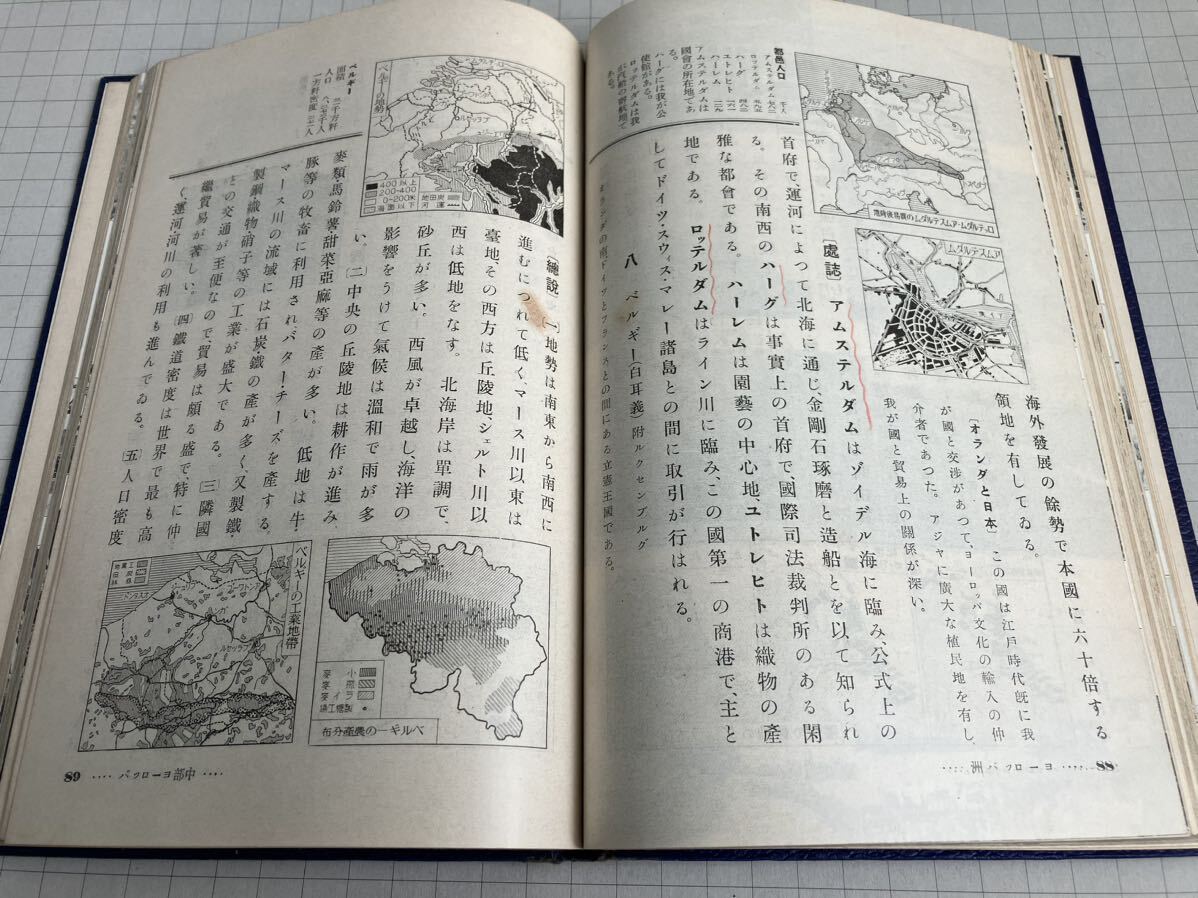 海外發展の餘勢で本國に六十倍する
領地を有してゐる。
〔オランダと日本〕 この國は江戸時代既に我
が國と交渉があつて、ヨーロッパ文化の輸入の仲
介者であつた。 アジヤに廣大な植民地を有し、
我が國と貿易上の關係が深い。
〔處誌〕 アムステルダムはゾイデル海に臨み公式上の
首府で運河によつて北海に通じ、金剛石琢磨と造船とを以て知られ
る。 その南西のハーグは事實上の首府で、國際司法裁判所のある閑
雅な都會である。 ハーレムは園藝の中心地、ユトレヒトは織物の產
地である。 ロッテルダムはライン川に臨み、この國第一の商港で、主と
してドイツ・スウィス・マレー諸島との間に取引が行はれる。
八 ベルギー(白耳義) 附ルクセンブルグ
オランダの南、ドイツとフランスとの間にある立憲王國である。
都邑人口
千人
アムステルダム
ロッテルダム
ハーグ
ユトレヒト
ハーレム
アムステルダムは
國會の所在地であ
ハーグには我が公
使館がある。
ロッテルダムは我
が汽船の寄航地で
ある。
ロッテルダム・アムステルダムの貿易後背地
アムステルダム
88 ‥‥ヨーロッパ洲‥‥
〔總說〕 (一)地勢は南東から南西に
進むにつれて低く、マース川以東は
臺地、その西方は丘陵地、シェルト川以
西は低地をなす。 北海岸は單調で、
砂丘が多い。 西風が卓越し、海洋の
影響をうけて氣候は溫和で雨が多
い。 (二)中央の丘陵地は耕作が進み、
麥類・馬鈴薯・甜菜・亞麻等の產が多い。 低地は牛・
豚等の牧畜に利用され、バター・チーズを產する。
マース川の流域には石炭・鐵の產が多く、又製鐵・
製鋼・織物・硝子等の工業が盛大である。 (三)隣國
との交通が至便なので、貿易は頗る盛で、特に仲
繼貿易が著しい。 (四)鐵道密度は世界で最も高
く、運河・河川の利用も進んでゐる。 (五)人口密度
ベルギー
面積
人口
一方粁密度
ベルギーの地勢
400以上
200-400
0-200米
海面以下
炭田地
運河
ベルギーの工業地帶
ベルギーの農產分布
89 ‥‥中部ヨーロッパ‥‥